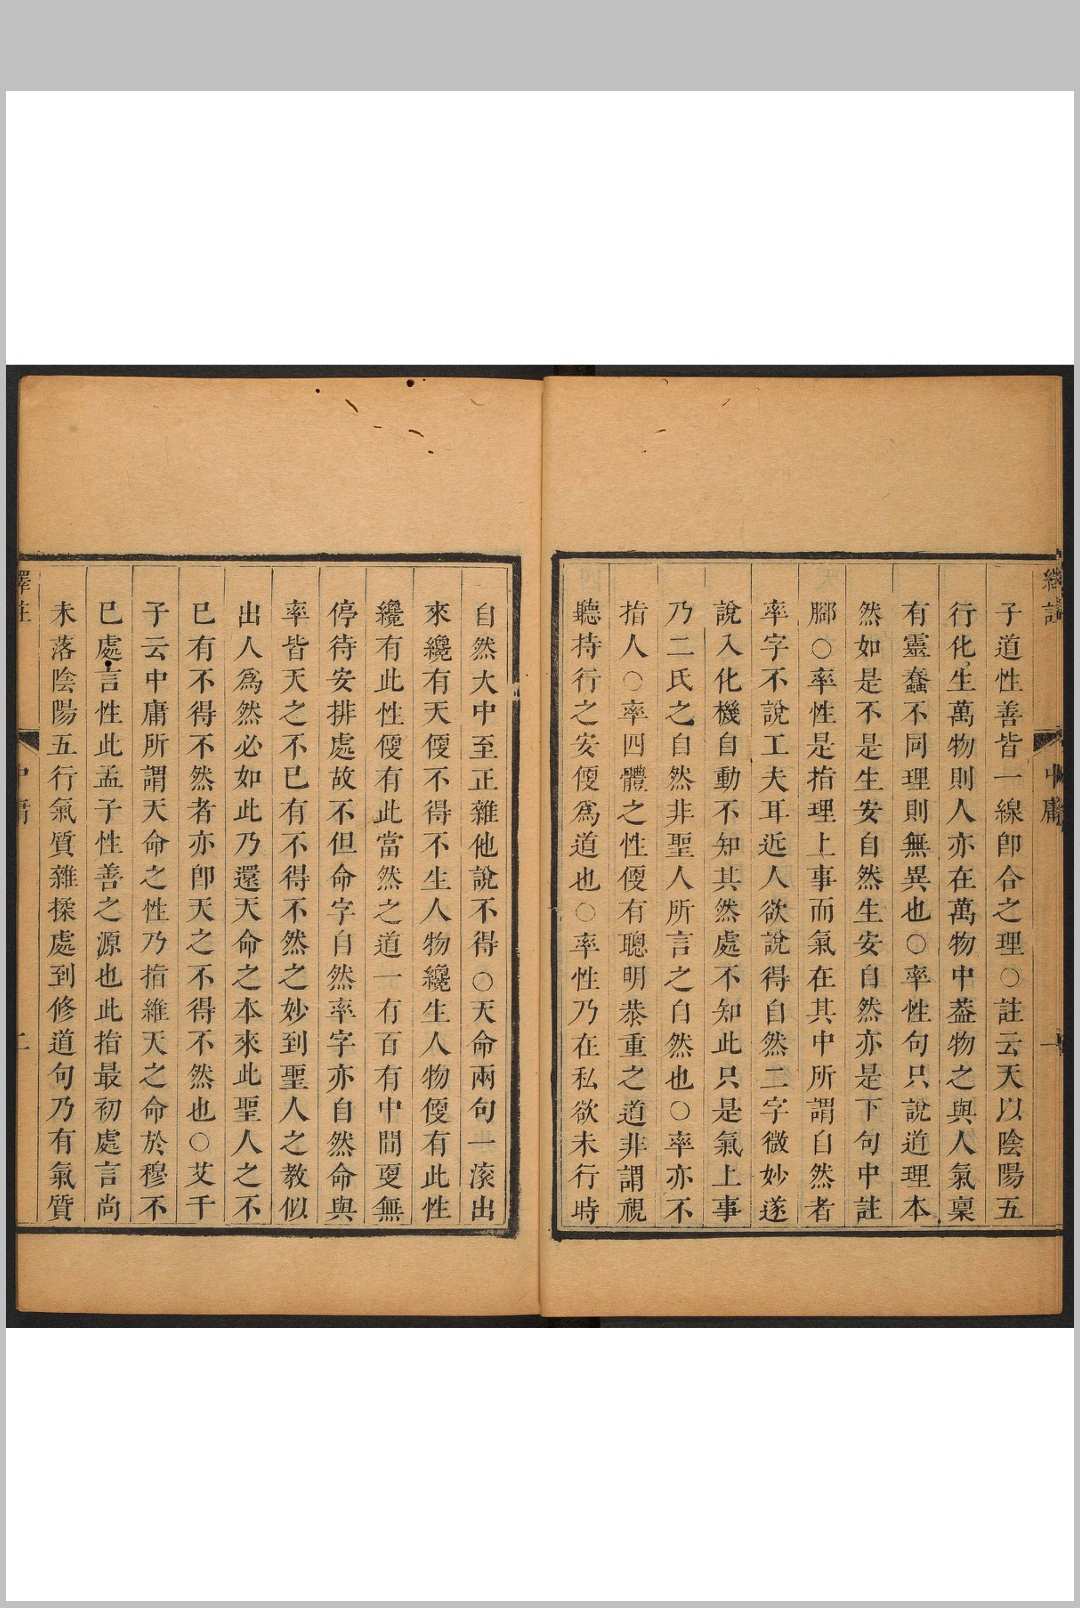 子道性善皆一線卽合之理○註云天以陰陽五
行化生萬物則人亦在萬物中葢物之與人氣稟
有靈蠢不同理則無異也○率性句只說道理本
然如是不是生安自然生安自然亦是下句中註
腳○率性是指理上事而氣在其中所謂自然者
率字不說工夫耳近人欲說得自然二字微妙遂
說入化機自動不知其然處不知此只是氣上事
乃二氏之自然非聖人所言之自然也○率亦不
指人○率四體之性便有聰明恭重之道非謂視
聽持行之安便爲道也○率性乃在私欲未行時
自然大中至正雜他說不得○天命兩句一滚出
來纔有天便不得不生人物纔生人物便有此性
纔有此性便有此當然之道一有百有中間更無
停待安排處故不但命字自然率字亦自然命與
率皆天之不已有不得不然之妙到聖人之教似
出人爲然必如此乃還天命之本來此聖人之不
已有不得不然者亦卽天之不得不然也○艾千
子云中庸所謂天命之性乃指維天之命於穆不
已處言性此孟子性善之源也此指最初處言尚
未落陰陽五行氣質雜揉處到修道句乃有氣質
中庸